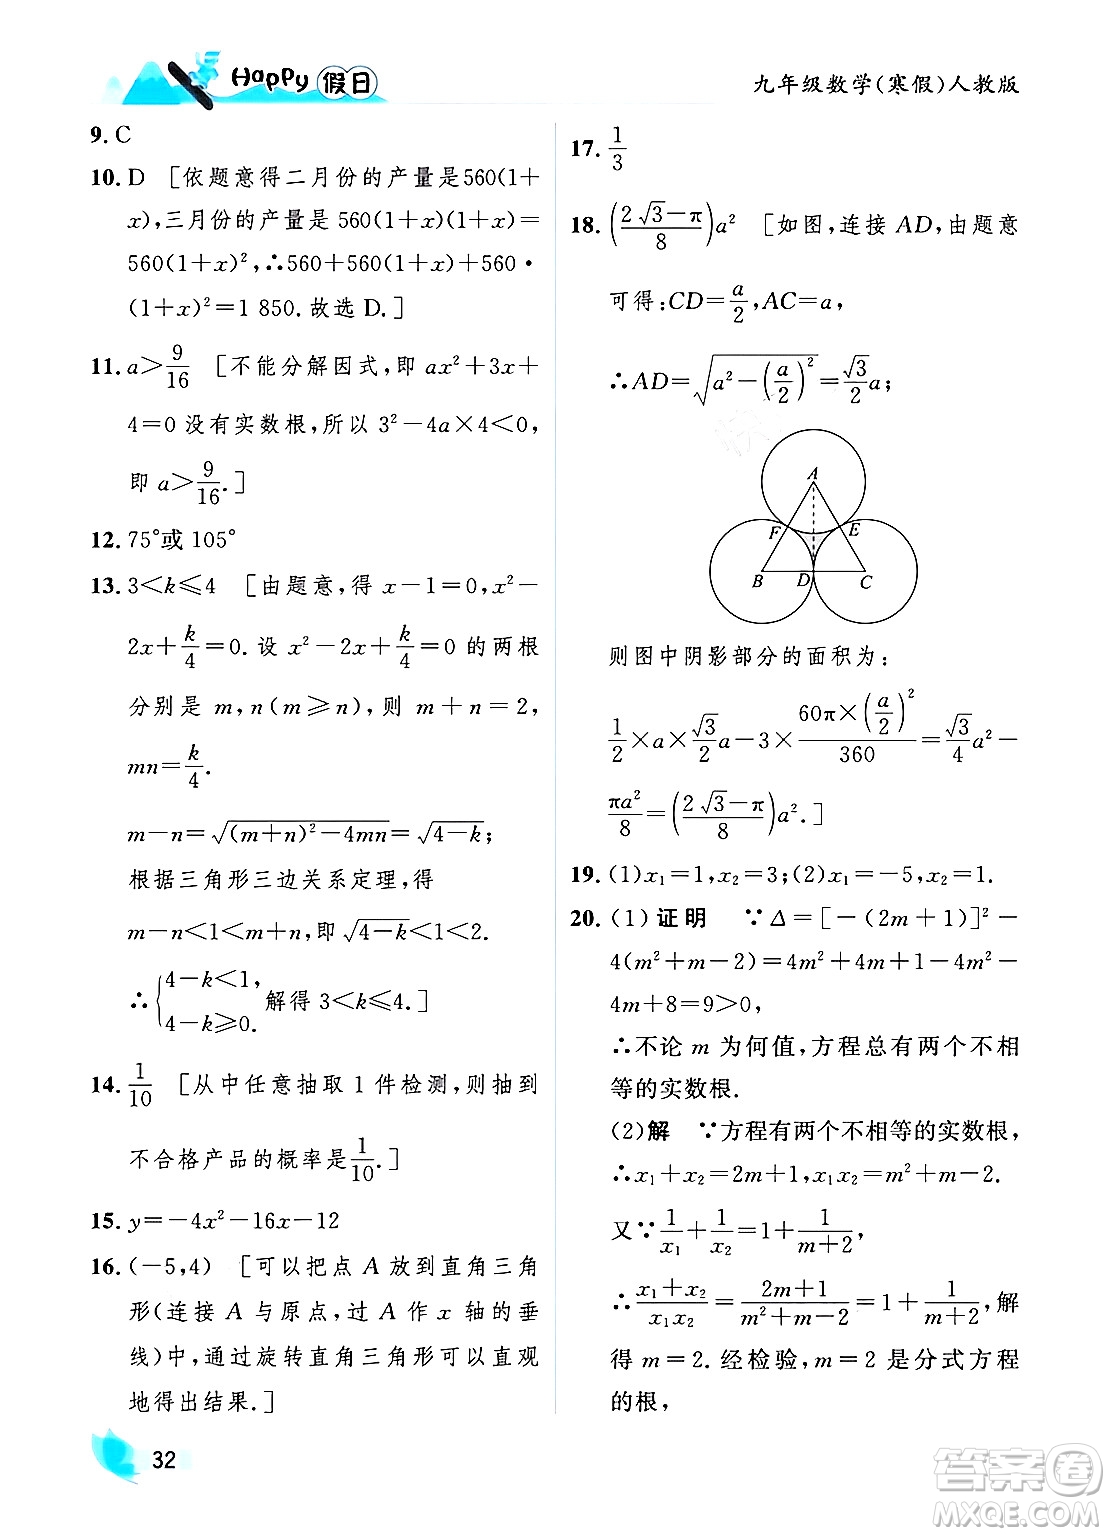 Happy 假日
九年级数学(寒假)人教版
9. C
10. D [依题意得二月份的产量是560(1+
x),三月份的产量是560(1+x)(1+x)=
560(1+x)²,∴560+560(1+x)+560·
(1+x)²=1 850.故选 D.]
11. a>9/16 [不能分解因式,即 ax²+3x+
4=0 没有实数根,所以 3²-4a×4<0,
即 a>9/16.]
12. 75°或 105°
13. 3<k≤4 [由题意,得 x-1=0,x²-
2x+k/4=0.设 x²-2x+k/4=0 的两根
分别是 m,n(m≥n),则 m+n=2,
mn=k/4.
m-n=√((m+n)²-4mn)=√(4-k);
根据三角形三边关系定理,得
m-n<1<m+n,即√(4-k)<1<2.
∴{4-k<1,
4-k≥0. 解得 3<k≤4.]
14. 1/10 [从中任意抽取 1 件检测,则抽到
不合格产品的概率是1/10.]
15. y=-4x²-16x-12
16. (-5,4) [可以把点 A 放到直角三角
形(连接 A 与原点,过 A 作 x 轴的垂
线)中,通过旋转直角三角形可以直观
地得出结果.]
32
17. 1/3
18. ((2√3-π)/8)a² [如图,连接 AD,由题意
可得:CD=a/2,AC=a,
∴AD=√(a²-(a/2)²)=(√3/2)a;
A
F E
B D C
则图中阴影部分的面积为:
1/2×a×(√3/2)a-3×(60π×(a/2)²)/360=(√3/4)a²-
πa²/8=((2√3-π)/8)a².]
19. (1)x₁=1,x₂=3;(2)x₁=-5,x₂=1.
20. (1)证明 ∵Δ=[-(2m+1)]²-
4(m²+m-2)=4m²+4m+1-4m²-
4m+8=9>0,
∴不论 m 为何值,方程总有两个不相
等的实数根.
(2)解 ∵方程有两个不相等的实数根,
∴x₁+x₂=2m+1,x₁x₂=m²+m-2.
又∵1/x₁+1/x₂=1+1/(m+2),
∴(x₁+x₂)/(x₁x₂)=(2m+1)/(m²+m-2)=1+1/(m+2),解
得 m=2.经检验,m=2 是分式方程
的根,
答案圈
MXQE.COM